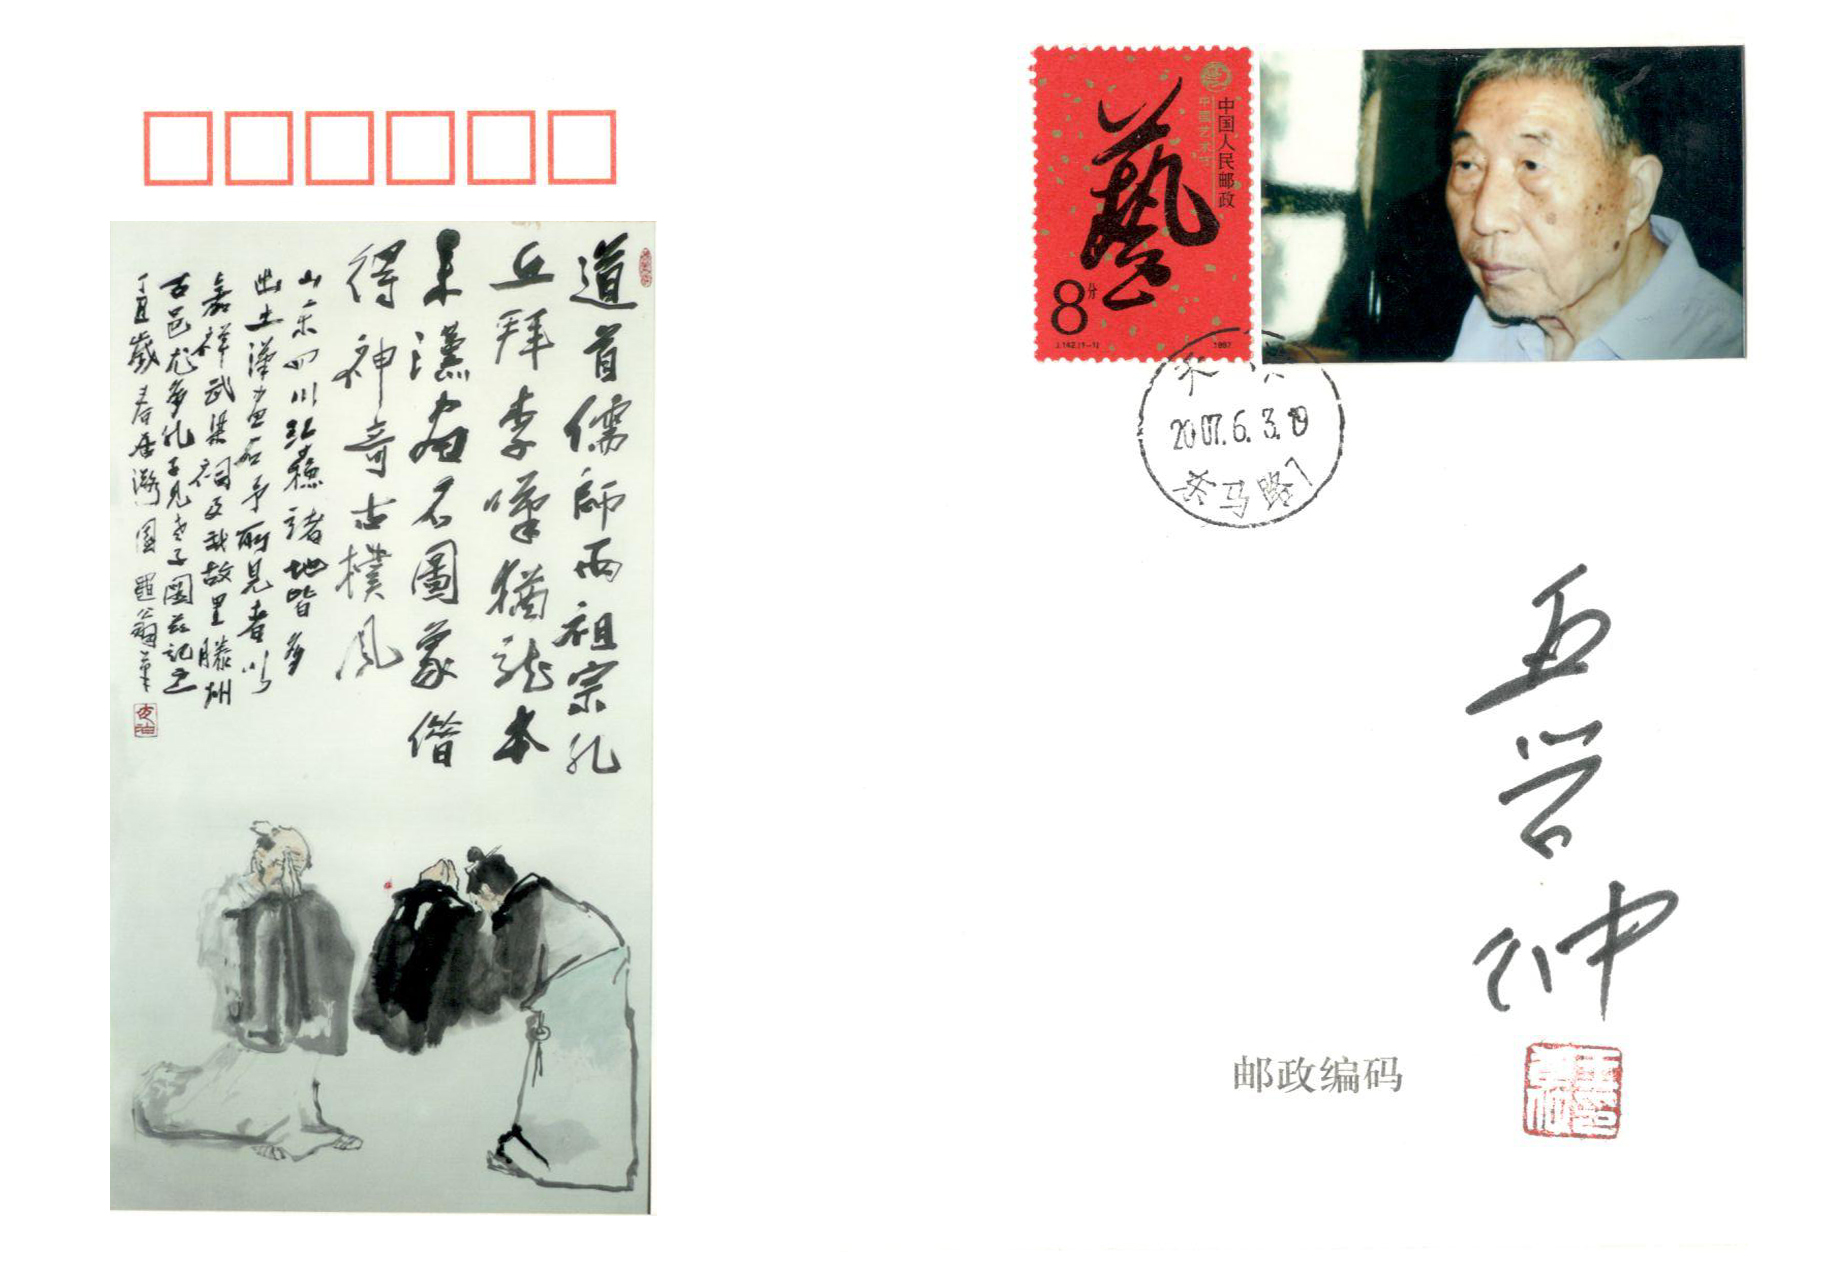 道首儒師兩祖宗孔
丘拜李嘆猶龍本
来漢畫石圖象借
得神奇古樸風
山东四川江蘇諸地皆多
出土漢畫石予所見者以
嘉祥武梁祠及我故里滕州
古邑尤多孔子見老子圖茲記之
歲春 園 黽翁筆
夜泊
中国人民邮政
中国艺术节
藝
8分
J.142.(1-1) 1987
天津
2007.6.3.19
马路1
王学仲
邮政编码
王學仲